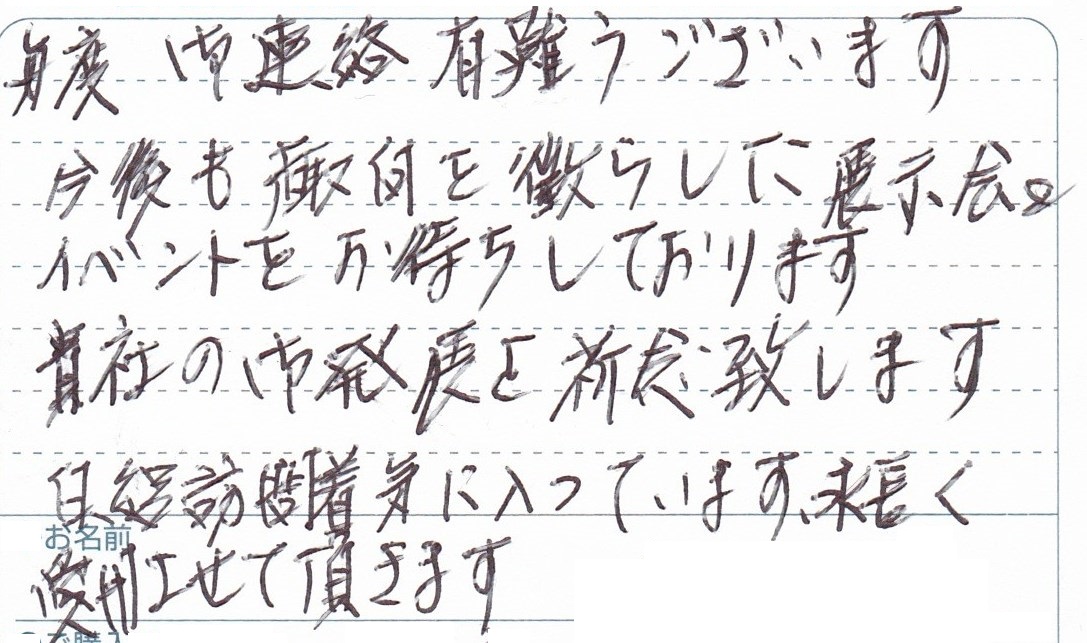 毎度 御連絡 有難うございます
今後も趣向を凝らした展示会
イベントをお待ちしております
貴社の御発展を祈念致します
訪問着 気に入っています、末長く
お名前
用させて頂きます